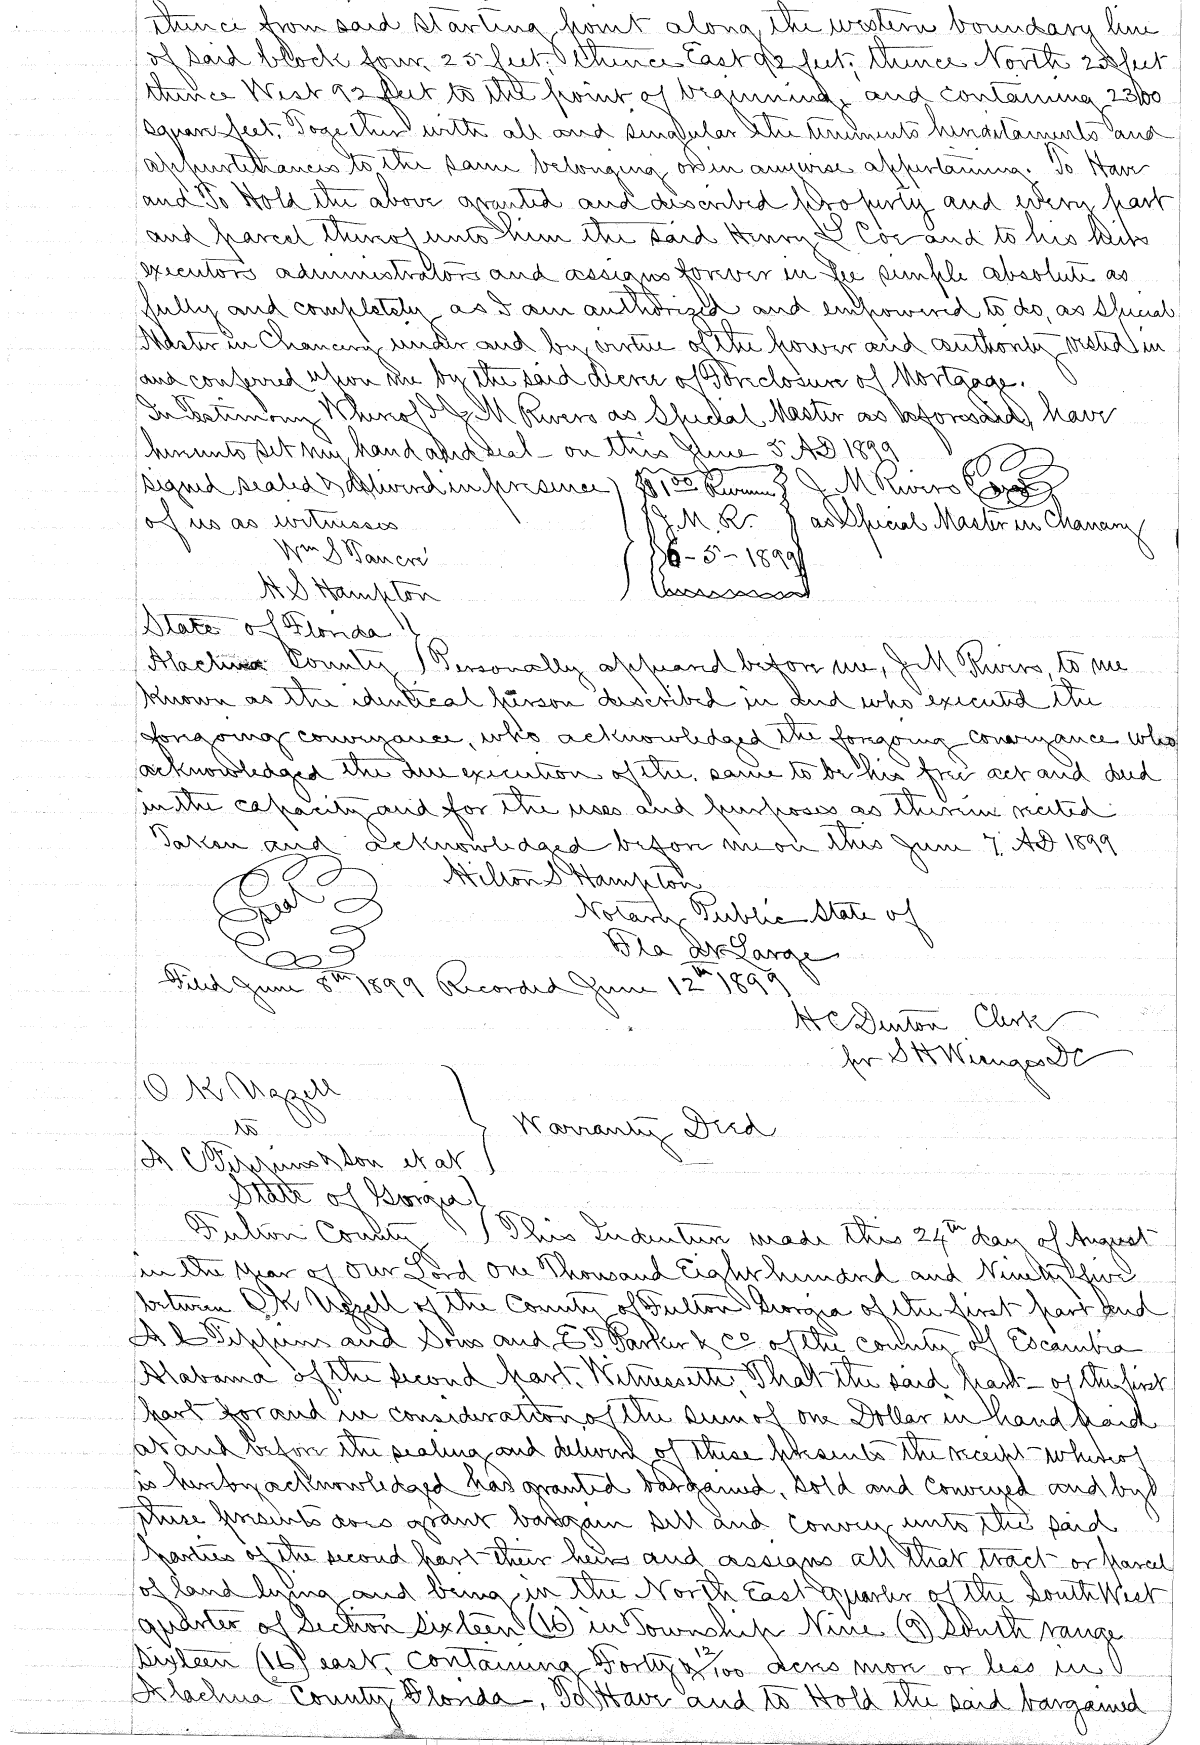 thence from said starting point along the western boundary line
of said block four, 25 feet, thence East 92 feet, thence North 25 feet
thence West 92 feet to the point of beginning, and containing 2300
square feet. Together with all and singular the tenements hereditaments and
appurtenances to the same belonging or in anywise appertaining. To Have
and To Hold the above granted and described property and every part
and parcel thereof unto him the said Henry L Coe and to his heirs
executors administrators and assigns forever in fee simple absolute as
fully and completely as I am authorized and empowered to do, as Special
Master in Chancery under and by virtue of the power and authority vested in
and conferred upon me by the said decree of Foreclosure of Mortgage.
In Testimony Whereof I J M Rivers as Special Master as aforesaid, have
hereunto set my hand and seal - on this June 5 AD 1899
signed sealed & delivered in presence ) $1.00 Revenue } J M Rivers Seal
of us as witnesses J. M. R. } as Special Master in Chancery
Wm S 6-5-1899
H S Hampton
State of Florida }
Alachua County ) Personally appeared before me, J M Rivers, to me
known as the identical person described in and who executed the
foregoing conveyance, who acknowledged the foregoing conveyance who
acknowledged the due execution of the same to be his free act and deed
in the capacity and for the uses and purposes as therein recited
Taken and acknowledged before me on this June 7, AD 1899
Hilton S Hampton
Seal Notary Public State of
Fla at Large
Filed June 8th 1899 Recorded June 12th 1899
H C Denton Clerk
per S H Wienges DC
O K Uzzell
to } Warranty Deed
A C Tippins & Son et al
State of Georgia }
Fulton County ) This Indenture made this 24th day of August
in the year of Our Lord One Thousand Eight hundred and Ninety five
between O K Uzzell of the County of Fulton Georgia of the first part and
A C Tippins and Sons and E T Parker & Co of the county of Escambia
Alabama of the second part, Witnesseth, That the said part - of the first
part for and in consideration of the sum of one Dollar in hand paid
at and before the sealing and delivery of these presents the receipt whereof
is hereby acknowledged has granted bargained, sold and conveyed and by
these presents does grant bargain sell and convey unto the said
parties of the second part their heirs and assigns all that tract or parcel
of land lying and being in the North East quarter of the South West
quarter of Section Sixteen (16) in Township Nine (9) South range
Sixteen (16) east, containing Forty & 12/100 acres more or less in
Alachua County Florida, To Have and to Hold the said bargained